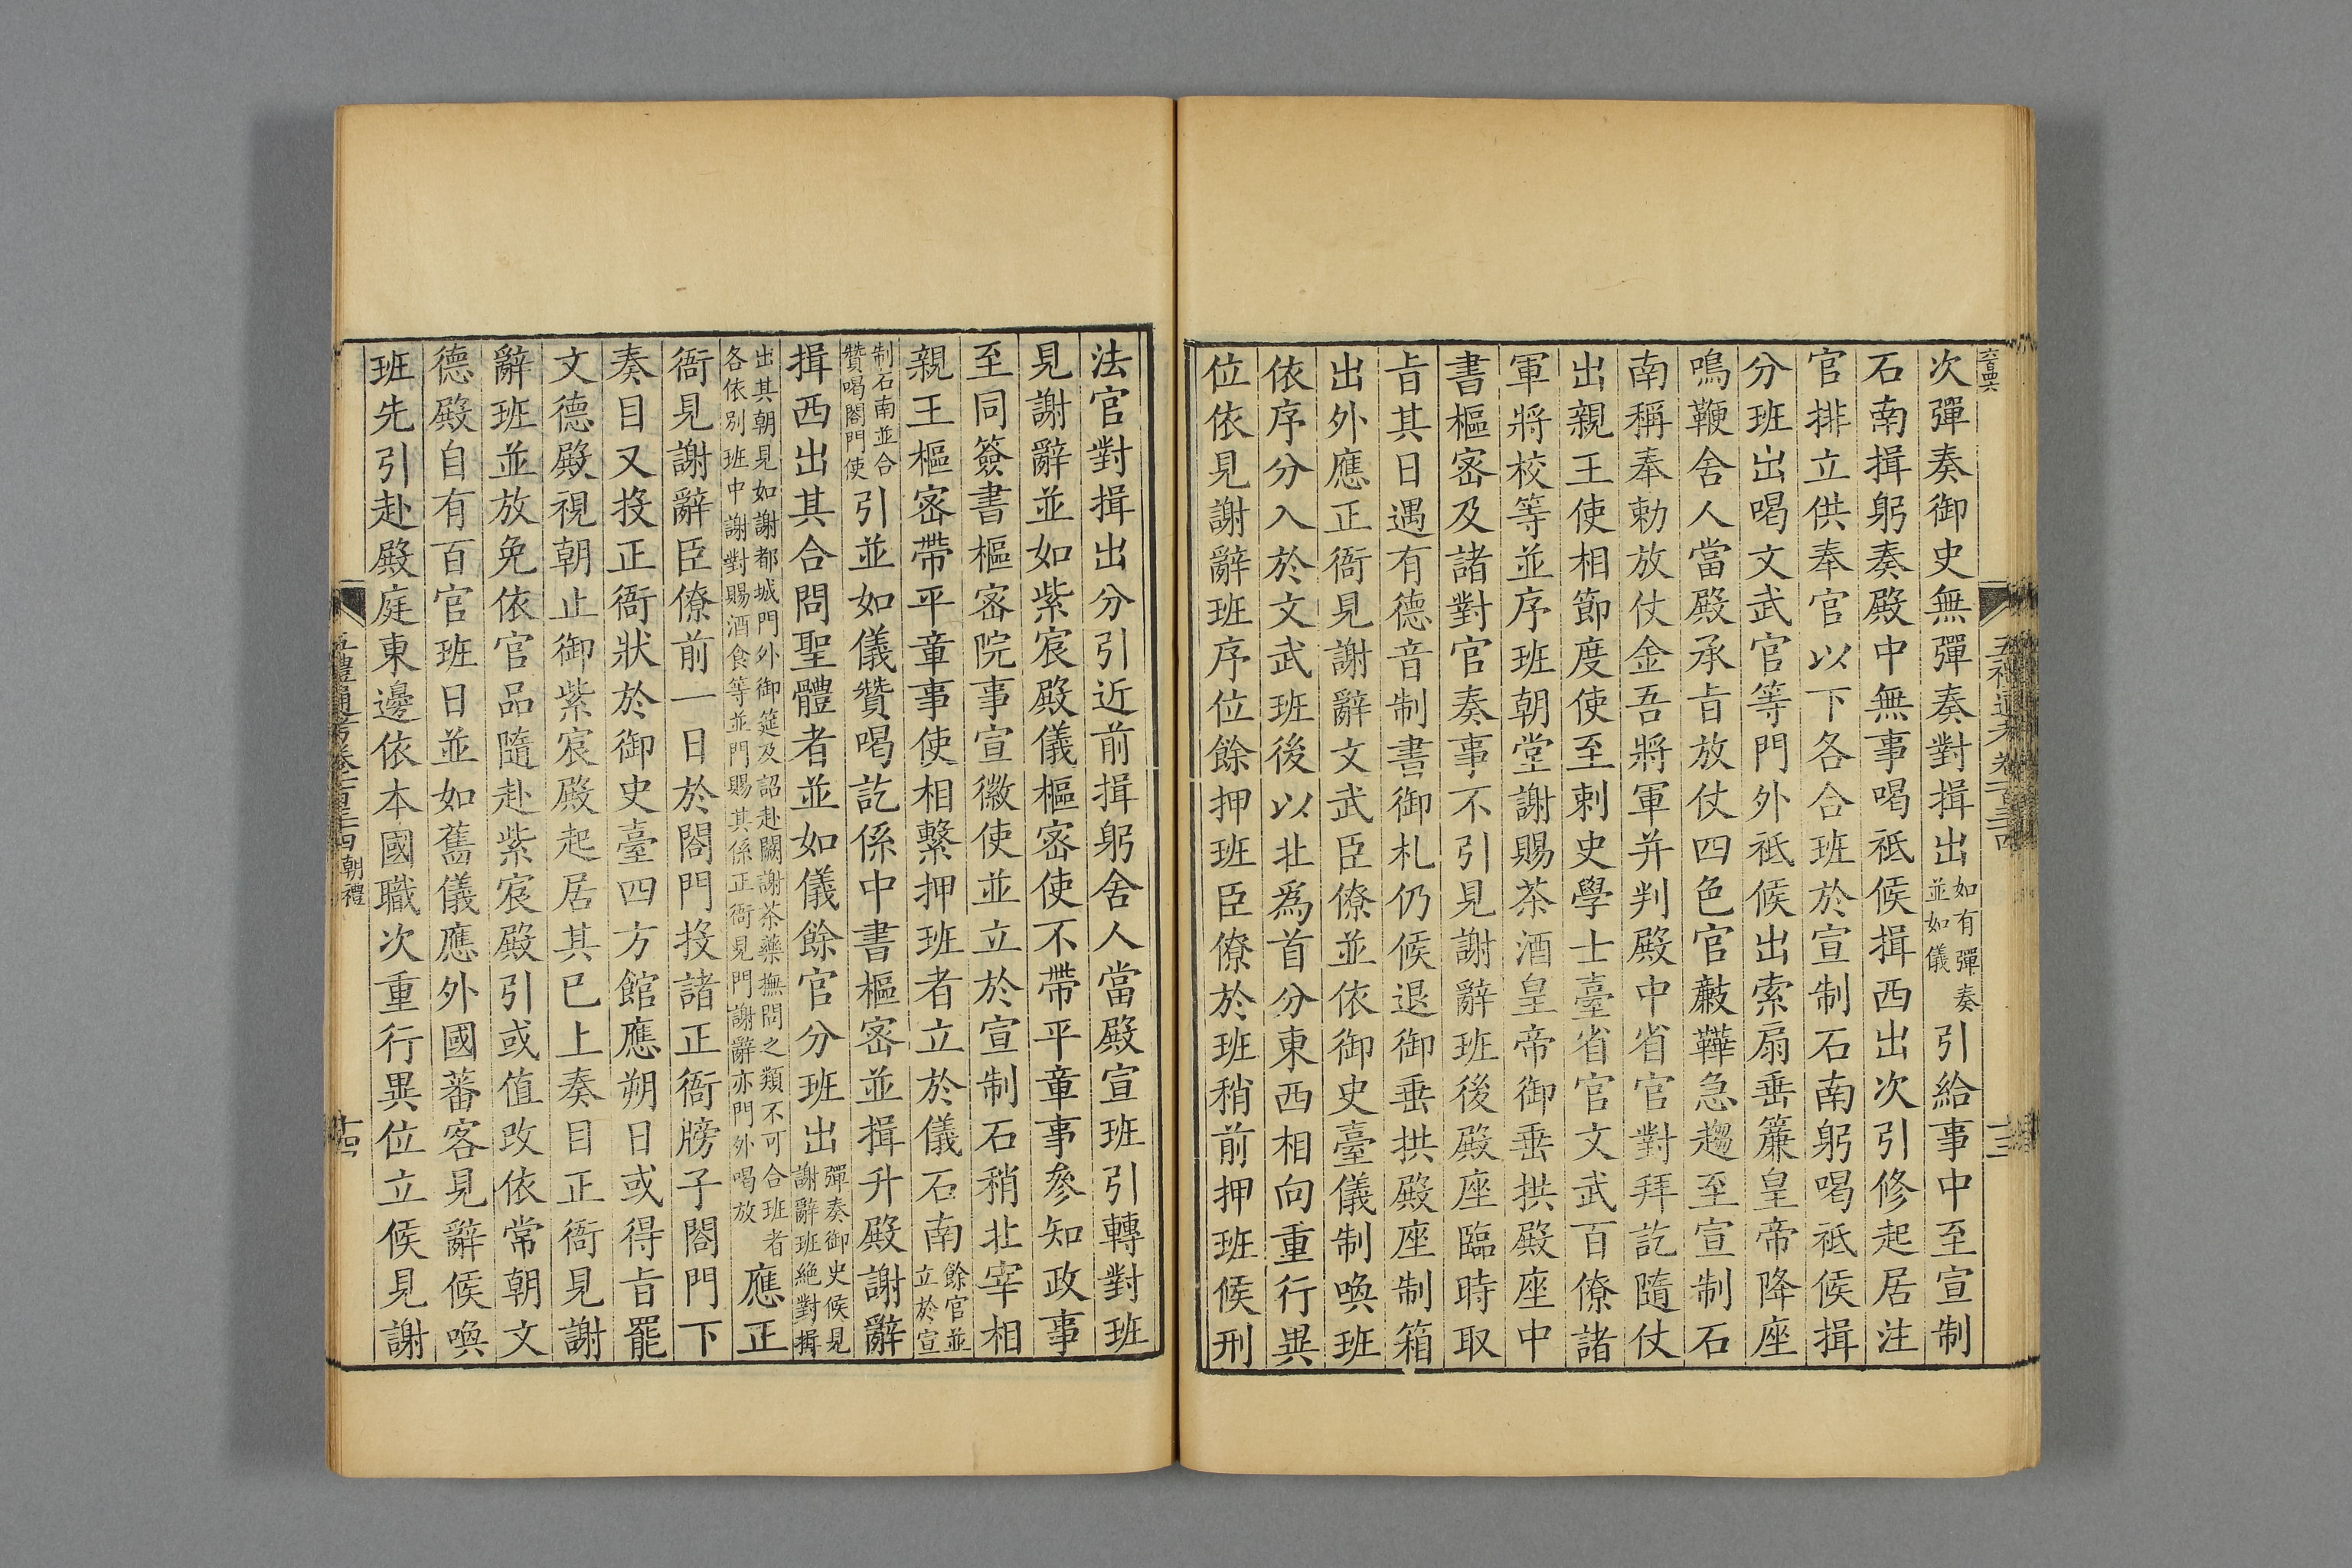 次彈奏御史無彈奏對揖出如有彈奏並如儀引給事中至宣制
石南揖躬奏殿中無事喝祗候揖西出次引修起居注
官排立供奉官以下各合班於宣制石南躬喝祗候揖
分班出喝文武官等門外祗候出索扇垂簾皇帝降座
鳴鞭舍人當殿承旨放仗四色官䩨鞾急趨至宣制石
南稱奉勅放仗金吾將軍并判殿中省官對拜訖隨仗
出親王使相節度使至刺史學士臺省官文武百僚諸
軍將校等並序班朝堂謝賜茶酒皇帝御垂拱殿座中
書樞密及諸對官奏事不引見謝辭班後殿座臨時取
旨其日遇有德音制書御札仍候退御垂拱殿座制箱
出外應正衙見謝辭文武臣僚並依御史臺儀制喚班
依序分入於文武班後以北爲首分東西相向重行異
位依見謝辭班序位餘押班臣僚於班稍前押班候刑
法官對揖出分引近前揖躬舍人當殿宣班引轉對班
見謝辭並如紫宸殿儀樞密使不帶平章事參知政事
至同簽書樞密院事宣徽使並立於宣制石稍北宰相
親王樞密帶平章事使相繫押班者立於儀石南餘官並立於宣
制石南並合贊喝閤門使引並如儀贊喝訖係中書樞密並揖升殿謝辭
揖西出其合問聖體者並如儀餘官分班出彈奏御史候見謝辭班絶對揖
出其朝見如謝都城門外御筵及詔赴闕謝茶藥撫問之類不可合班者各依別班中謝對賜酒食等並門賜其係正衙見門謝辭亦門外喝放應正
衙見謝辭臣僚前一日於閤門投諸正衙牓子閤門下
奏目又投正衙狀於御史臺四方館應朔日或得旨罷
文德殿視朝止御紫宸殿起居其已上奏目正衙見謝
辭班並放免依官品隨赴紫宸殿引或值改依常朝文
德殿自有百官班日並如舊儀應外國蕃客見辭候喚
班先引赴殿庭東邊依本國職次重行異位立候見謝
五禮通考卷一百三十四 朝禮
十四